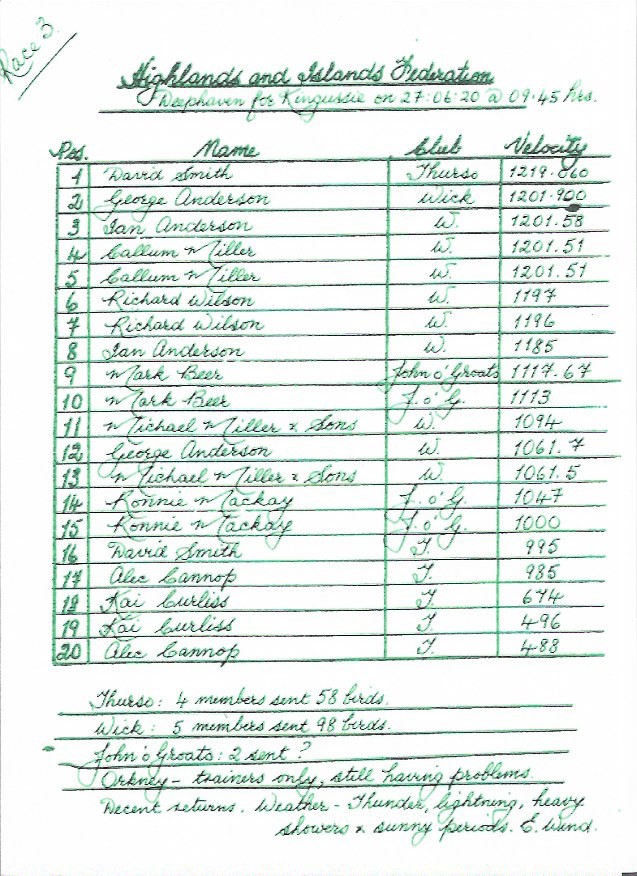 Race 3.
Highlands and Islands Federation
Deephaven for Kingussie on 27:06:20 @ 09.45 hrs.
Pos. Name Club Velocity
1 David Smith Thurso 1219.060
2 George Anderson Wick 1201.900
3 Ian Anderson W. 1201.58
4 Callum Miller W. 1201.51
5 Callum Miller W. 1201.51
6 Richard Wilson W. 1197
7 Richard Wilson W. 1196
8 Ian Anderson W. 1185
9 Mark Beer John o'Groats 1117.67
10 Mark Beer J. o' G. 1113
11 Michael Miller & Sons W. 1094
12 George Anderson W. 1061.7
13 Michael Miller & Sons W. 1061.5
14 Ronnie Mackay J. o' G. 1047
15 Ronnie Mackay J. o' G. 1000
16 David Smith T. 995
17 Alec Cannop T. 985
18 Kai Curliss T. 674
19 Kai Curliss T. 496
20 Alec Cannop T. 488
Thurso: 4 members sent 58 birds.
Wick: 5 members sent 98 birds.
John o'Groats: 2 sent ?
Orkney - trainers only, still having problems.
Decent returns. Weather - Thunder, lightning, heavy
showers & sunny periods. E. wind.